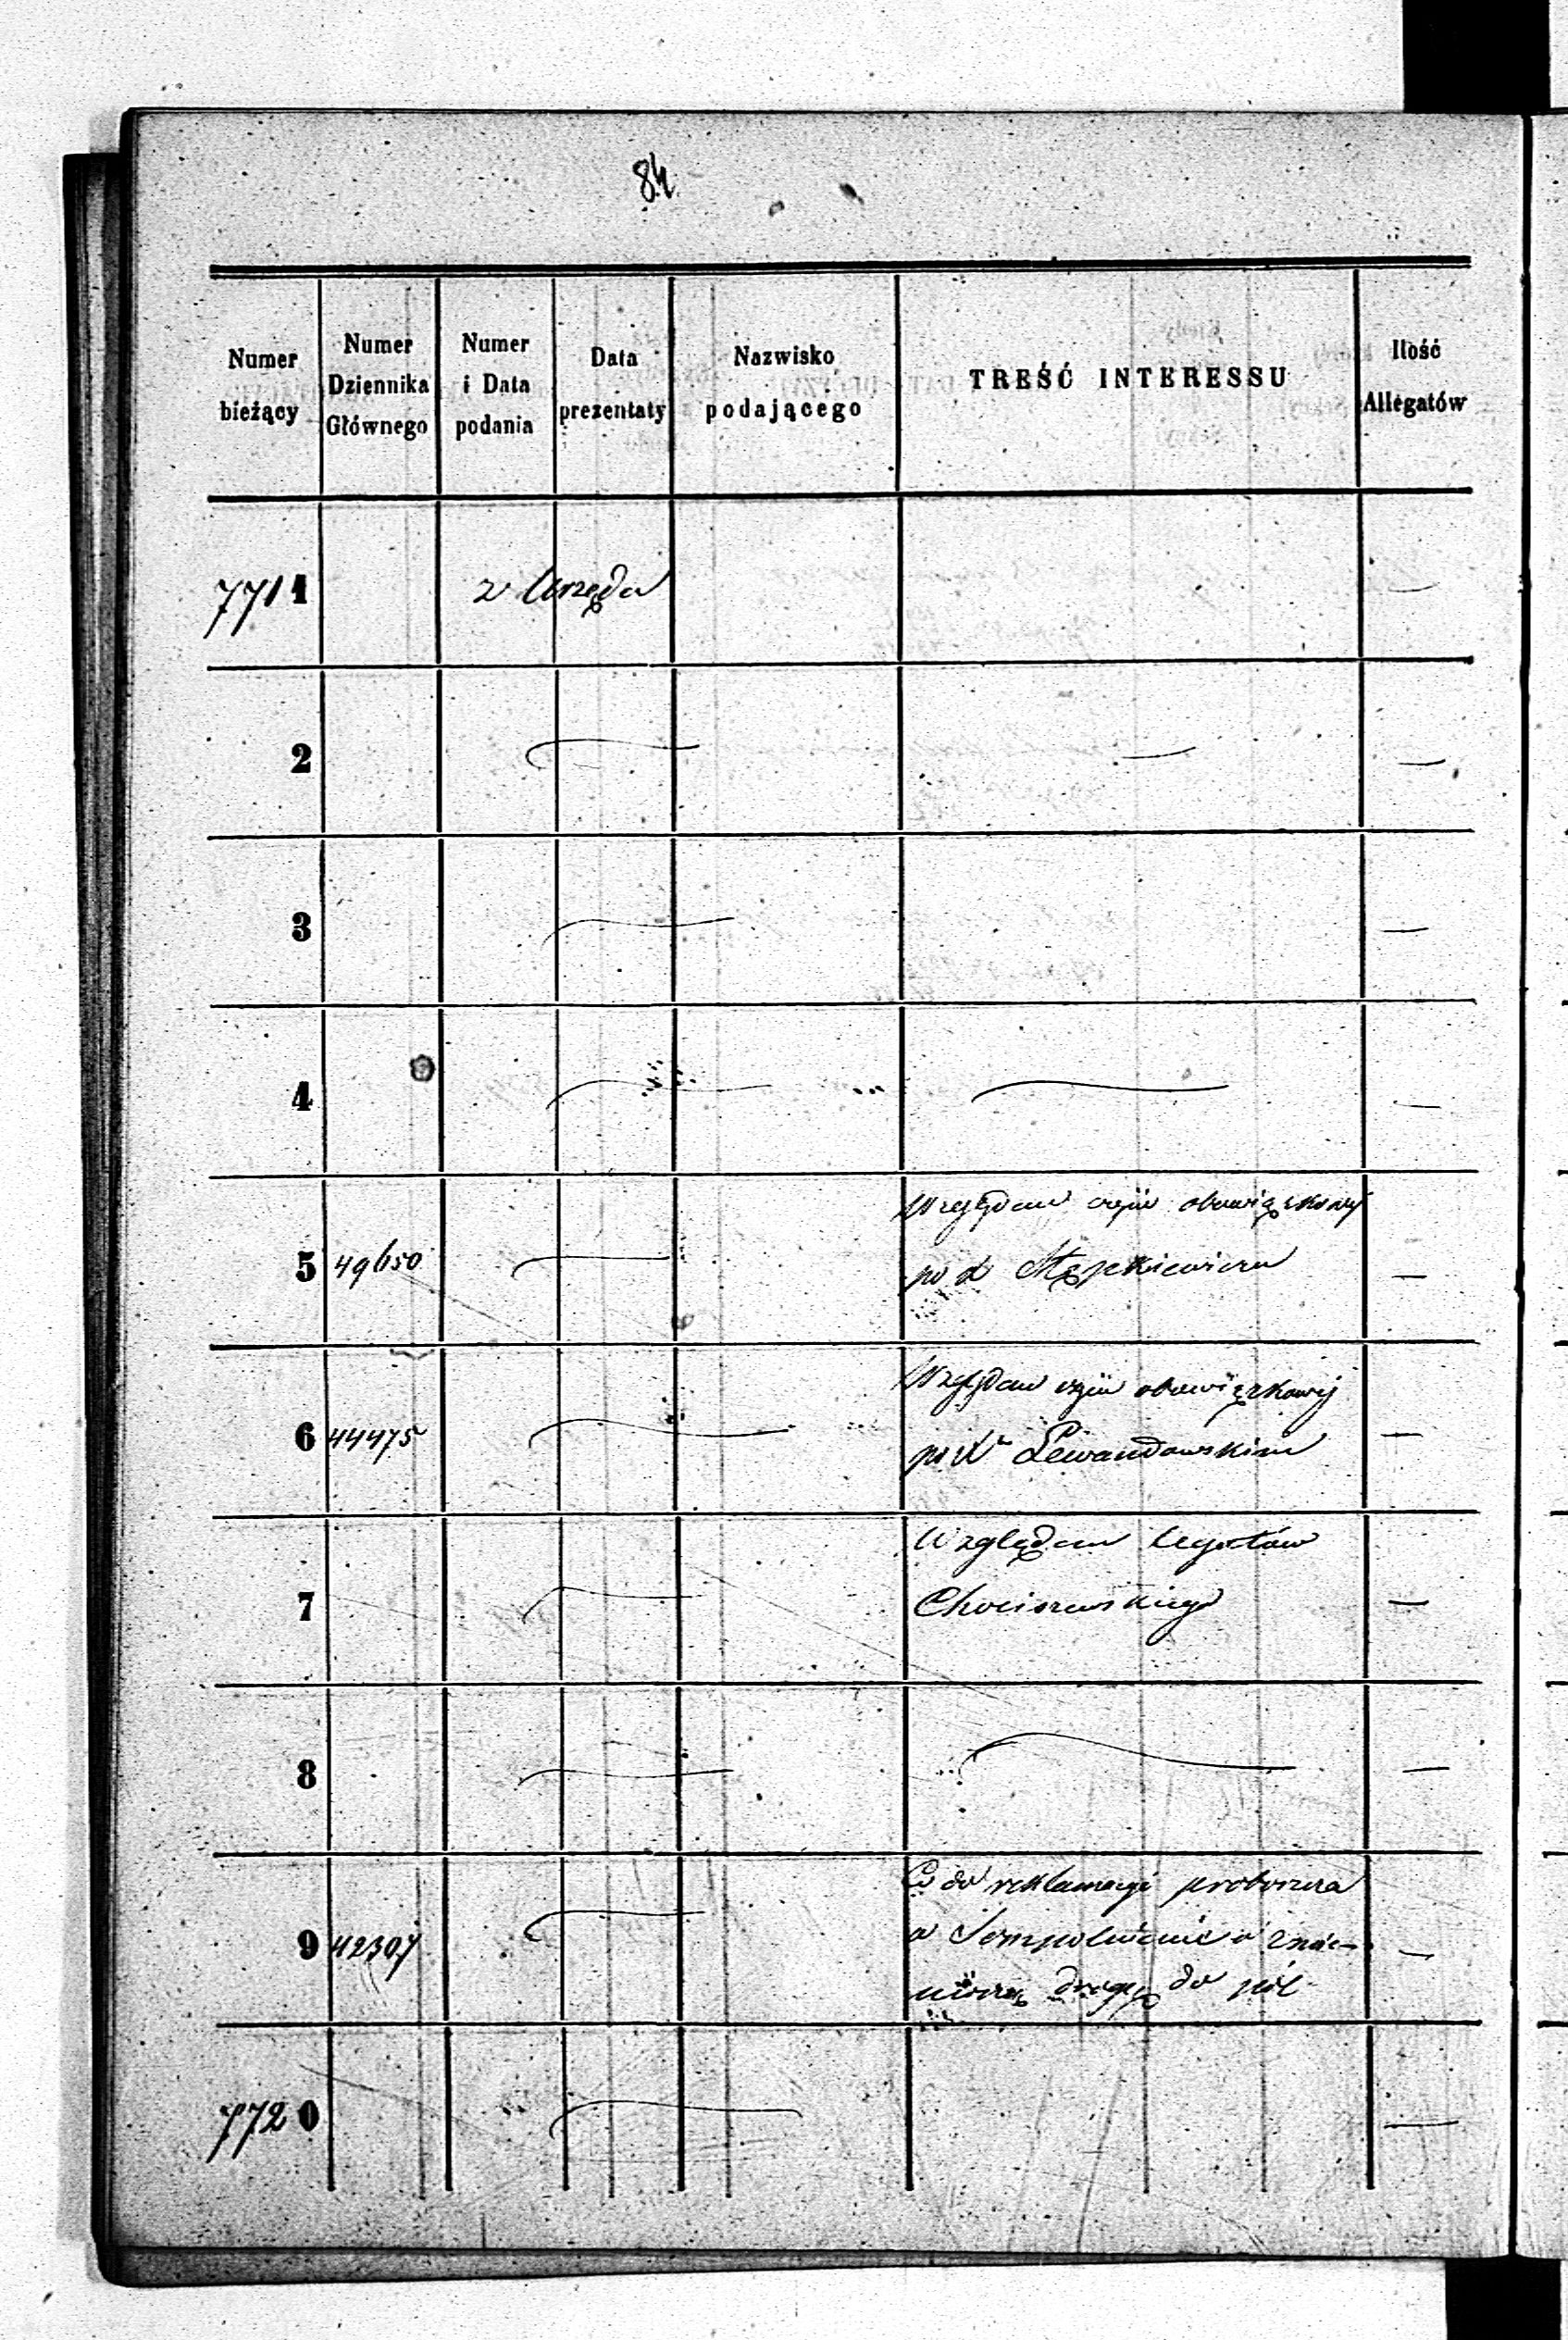 84
Numer bieżący
Numer Dziennika Głównego
Numer i Data podania
Data prezentaty
Nazwisko podającego
TREŚĆ INTERESSU
Ilość Allegatów
7711 z Urzędu —
2 — — —
3 — —
4 — — —
5 49650 — Względem obowiązkowej —
po
6 44475 — Względem obowiązkowej —
po Lewandowskim
7 — Względem legatów —
Chociszewskiego
8 — — —
9 42307 — Co do reklamacyi proboszcza —
w
drogę do pól
7720 — —